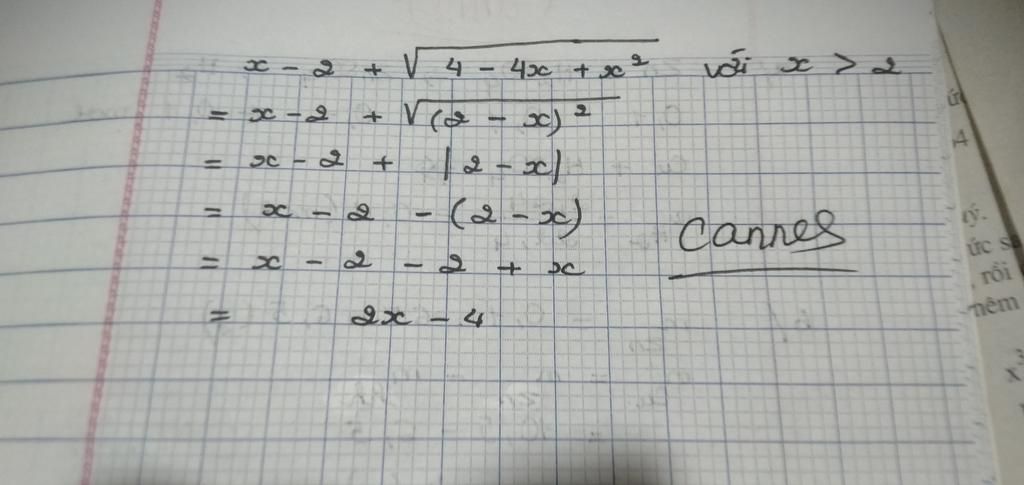 x - 2 + √(4 - 4x + x²) với x > 2
= x - 2 + √(2 - x)²
= x - 2 + |2 - x|
= x - 2 - (2 - x)
= x - 2 - 2 + x
= 2x - 4
Cannes
rý.
ức s
, rồi
nêm
x³